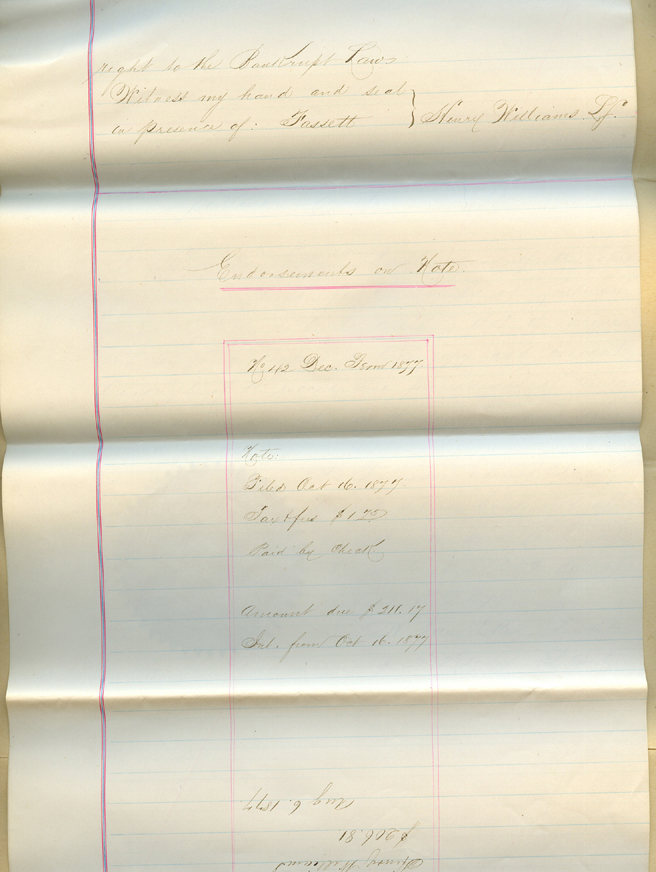 right to the Bankrupt Laws
Witness my hand and seal
in presence of: Fassett } Henry Williams
Endorsements on Note.
No 192 Dec. Term 1877
Note.
Filed Oct 16. 1877
Tax & fees $1.75
Paid by Check
Amount due $211.17
Int. from Oct 16. 1877
Aug 6. 1877
$206.81
Henry Williams